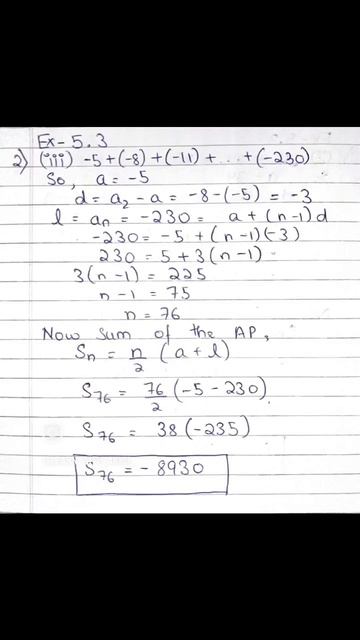 Ex - 5.3
2) (iii) -5+(-8)+(-11)+...+(-230)
So, a = -5
d = a₂ - a = -8-(-5) = -3
l = aₙ = -230 = a+(n-1)d
-230 = -5 + (n-1)(-3)
230 = 5+3(n-1)
3(n-1) = 225
n-1 = 75
n = 76
Now sum of the AP,
Sₙ = n/2 (a+l)
S₇₆ = 76/2 (-5-230)
S₇₆ = 38(-235)
S₇₆ = -8930